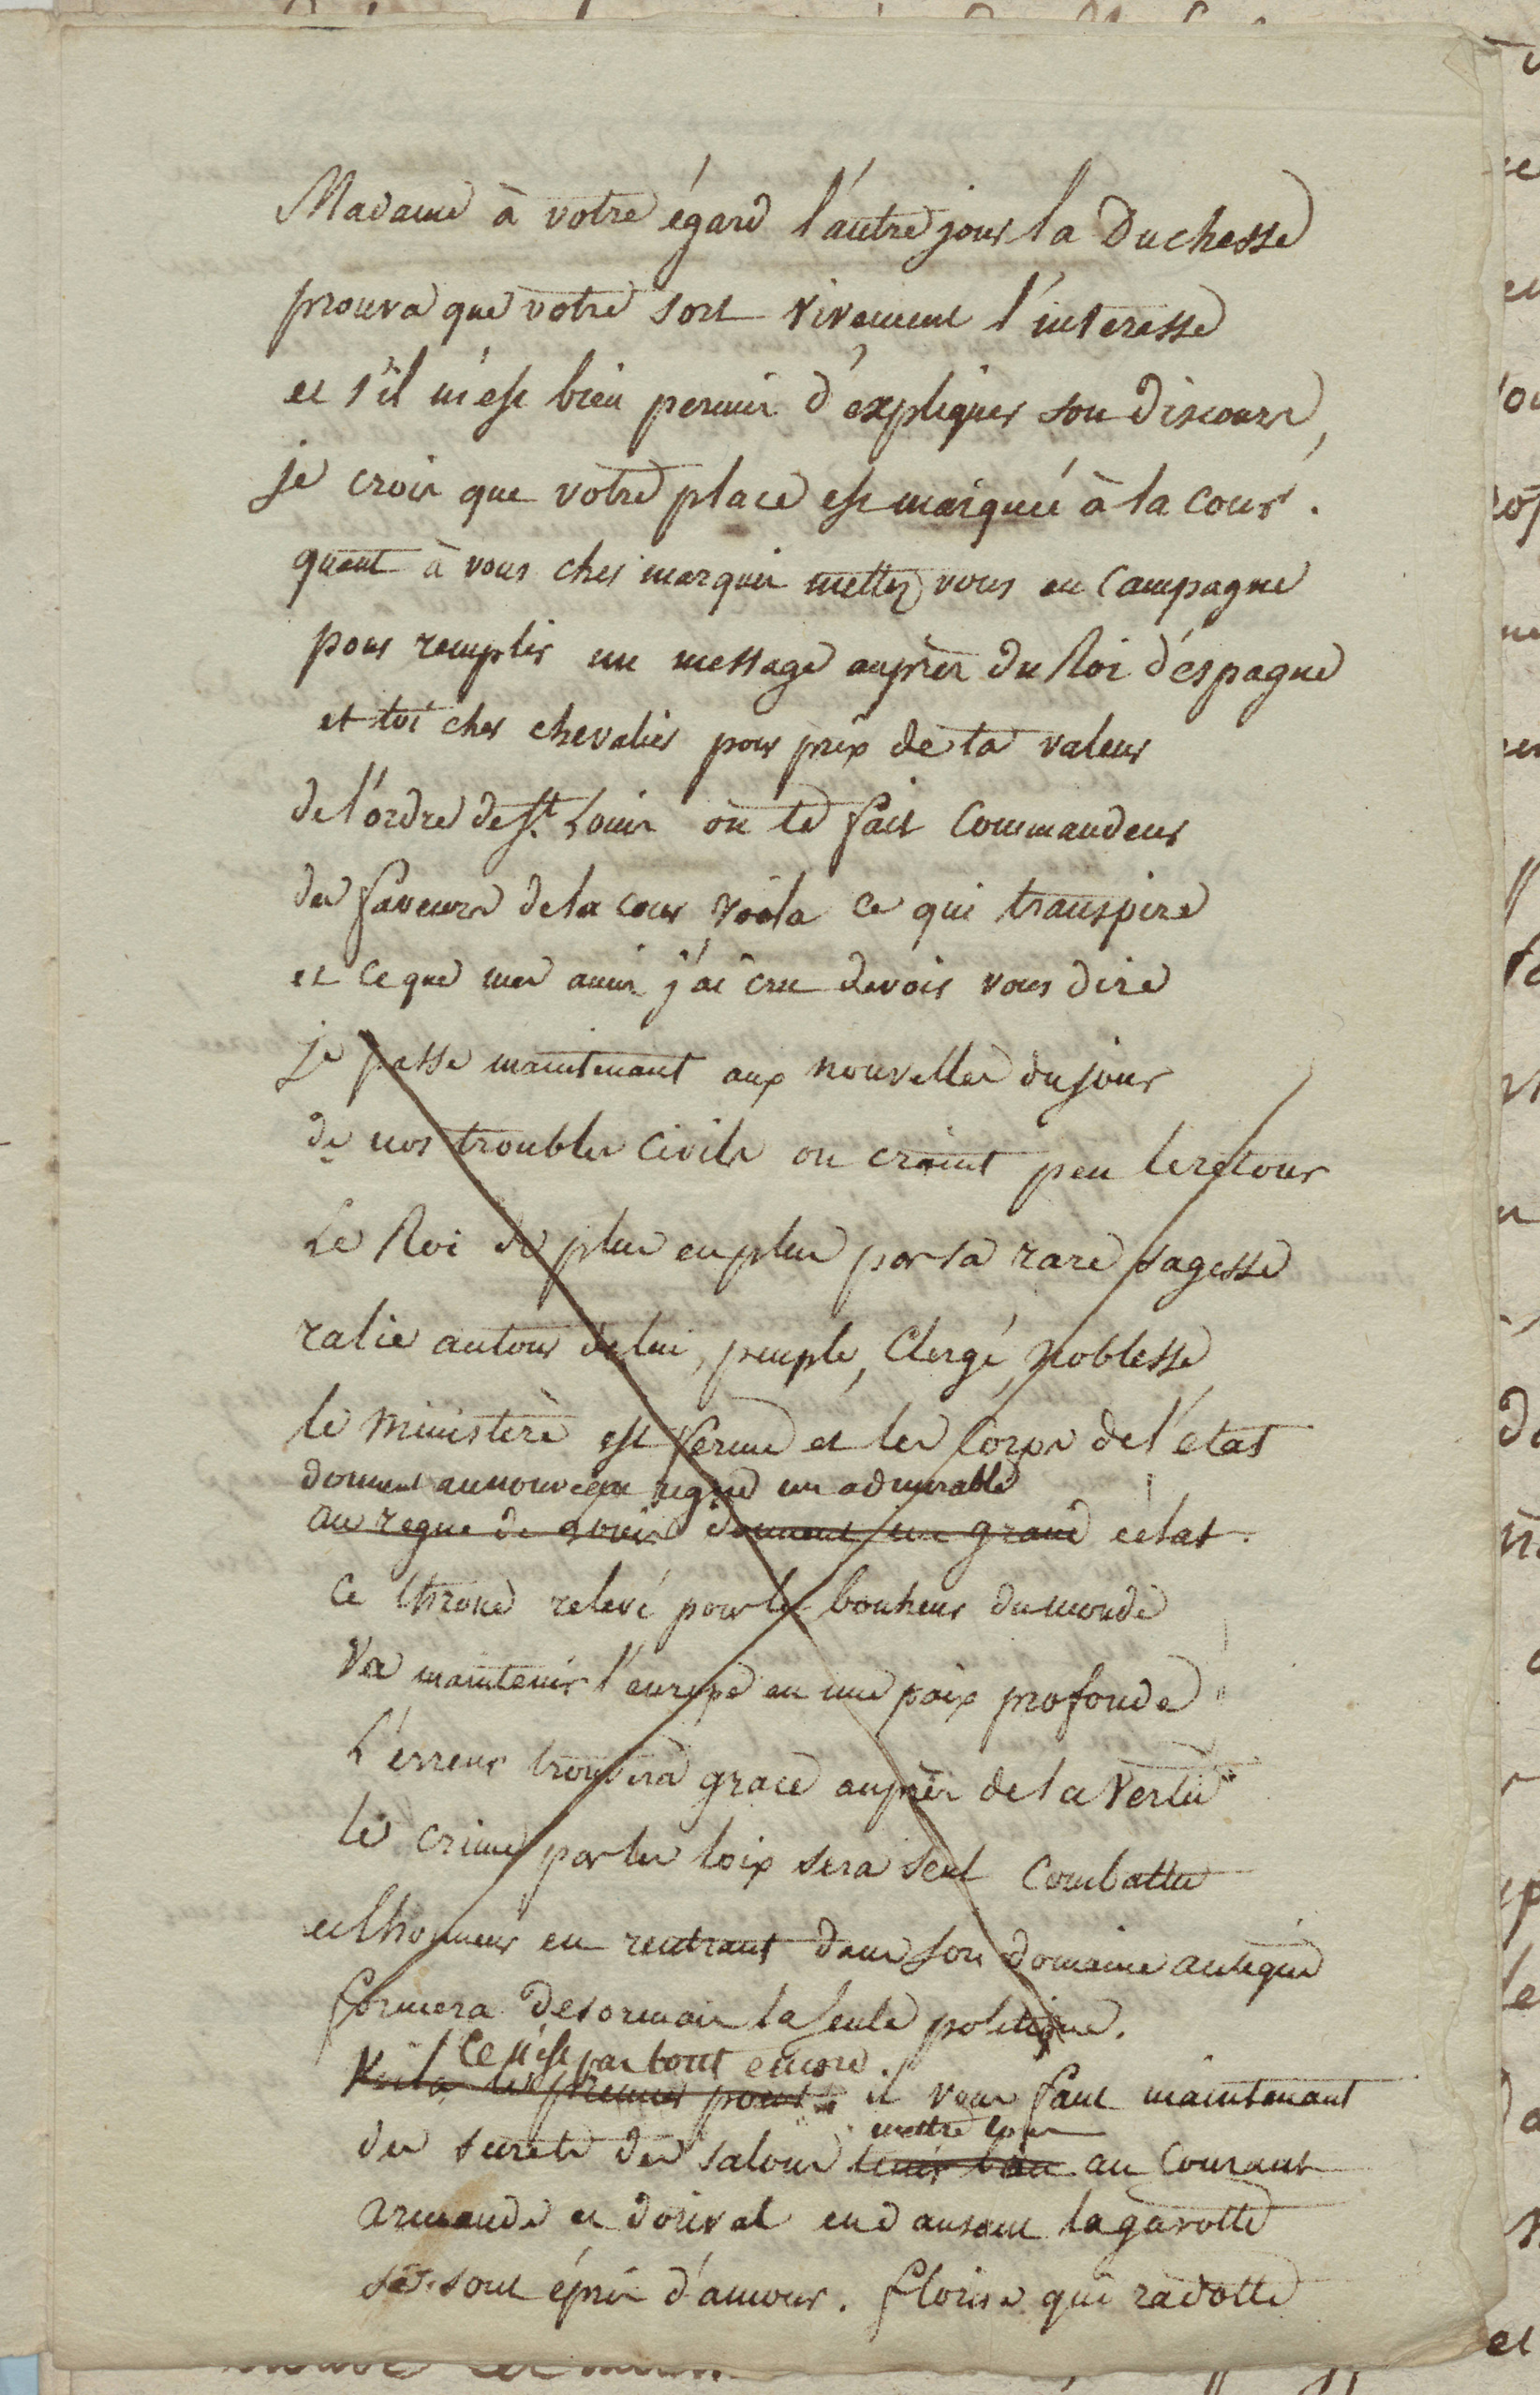 Madame à votre égard l'autre jour la Duchesse
prouva que votre sort vivement l'interesse
et s'il m'est bien permis d'expliquer son discours,
je crois que votre place est marquée à la cour.
quant à vous cher marquis mettez vous en campagne
pour remplir un message auprès du Roi d'espagne
et toi cher chevalier pour prix de ta valeur
de l'ordre de St. Louis on te fait Commandeur
des faveurs de la cour voila ce qui transpire
et ce que mes amis j'ai cru devoir vous dire
Je passe maintenant aux nouvelles du jour
de nos troubles civils on craint peu le retour
Le Roi de plus en plus par sa rare sagesse
ralie autour de lui, peuple, Clergé, noblesse
le Ministère est ferme et les Corps de l'état
donnent au nouveau regne un admirable
au regne de Louis donnent un grand éclat.
Ce throne relevé pour le bonheur du monde
Va maintenir l'europe en une paix profonde
L'erreur trouvera grace auprès de la vertu
le crime par les loix sera seul combattu
et lhonneur en rentrant dans son domaine antique
formera desormais la seule politique.
Ce n'est pas tout encore.
Voila les premier point. il vous faut maintenant
mettre
des secrets des salons au courant
armande et dorival en dansant la gavotte
se sont épris d'amour. florise qui radotte